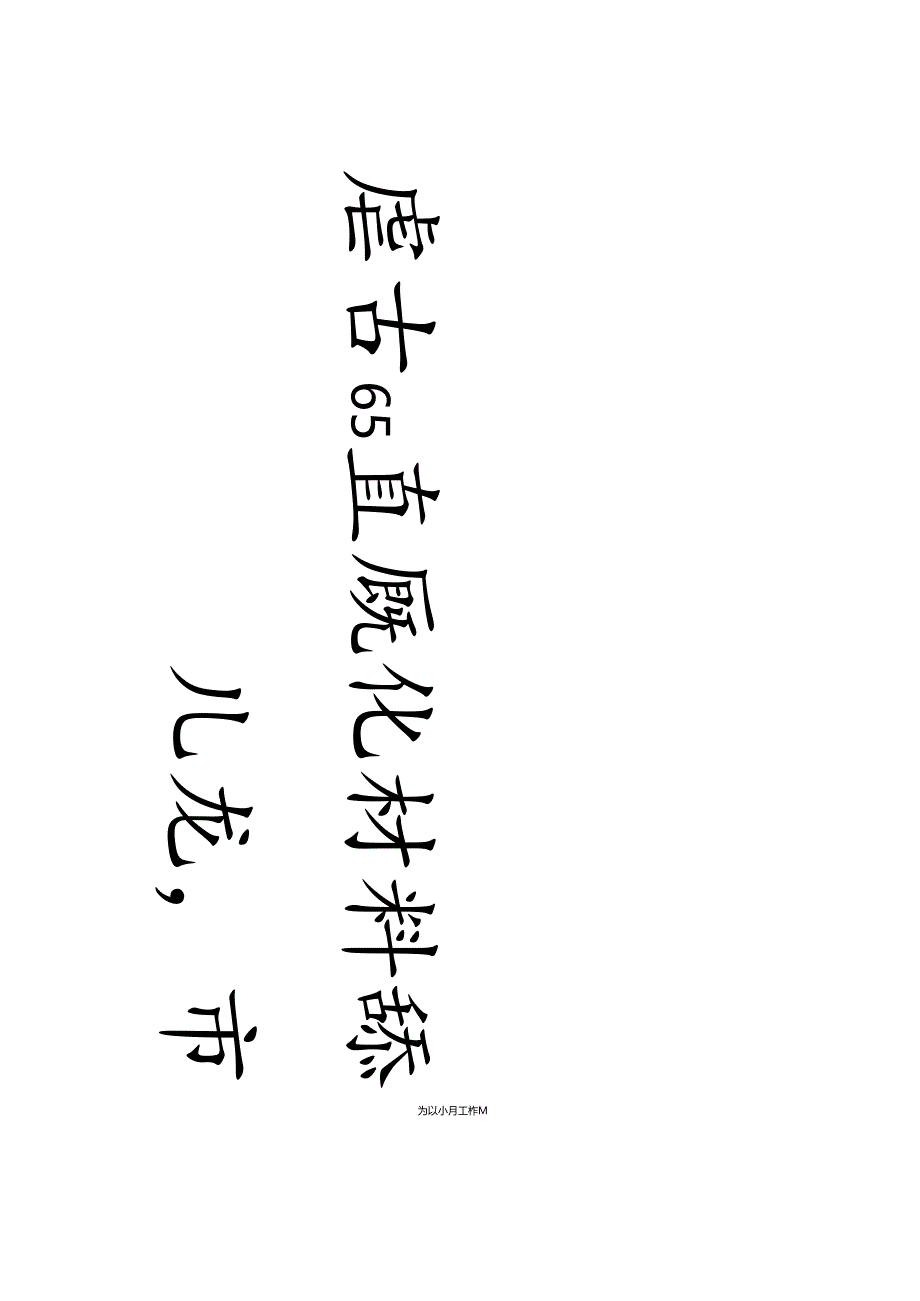 虐古65直厩化材料舔
儿龙，市
为以小月工作M